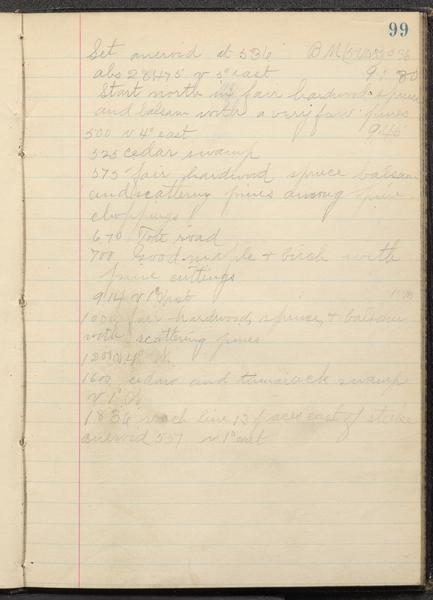 99
Set aneroid at 536 B M
abs 28475 v 5° east 9:30
Start north in fair hardwood spruce
and balsam with a very few pines
500 v 4° east 9:45
525 cedar swamp
575 fair hardwood spruce balsam
and scattering pines among pine
choppings
670 Tote road
700 Good maple & birch with
pine cuttings
914 v 1° east
1000 fair hardwood, spruce, & balsam
with scattering pines
1200 v 4°
1600 cedar and tamarack swamp
v 1°
1836 reach line 13 paces east of stake
aneroid 557 v 1° east